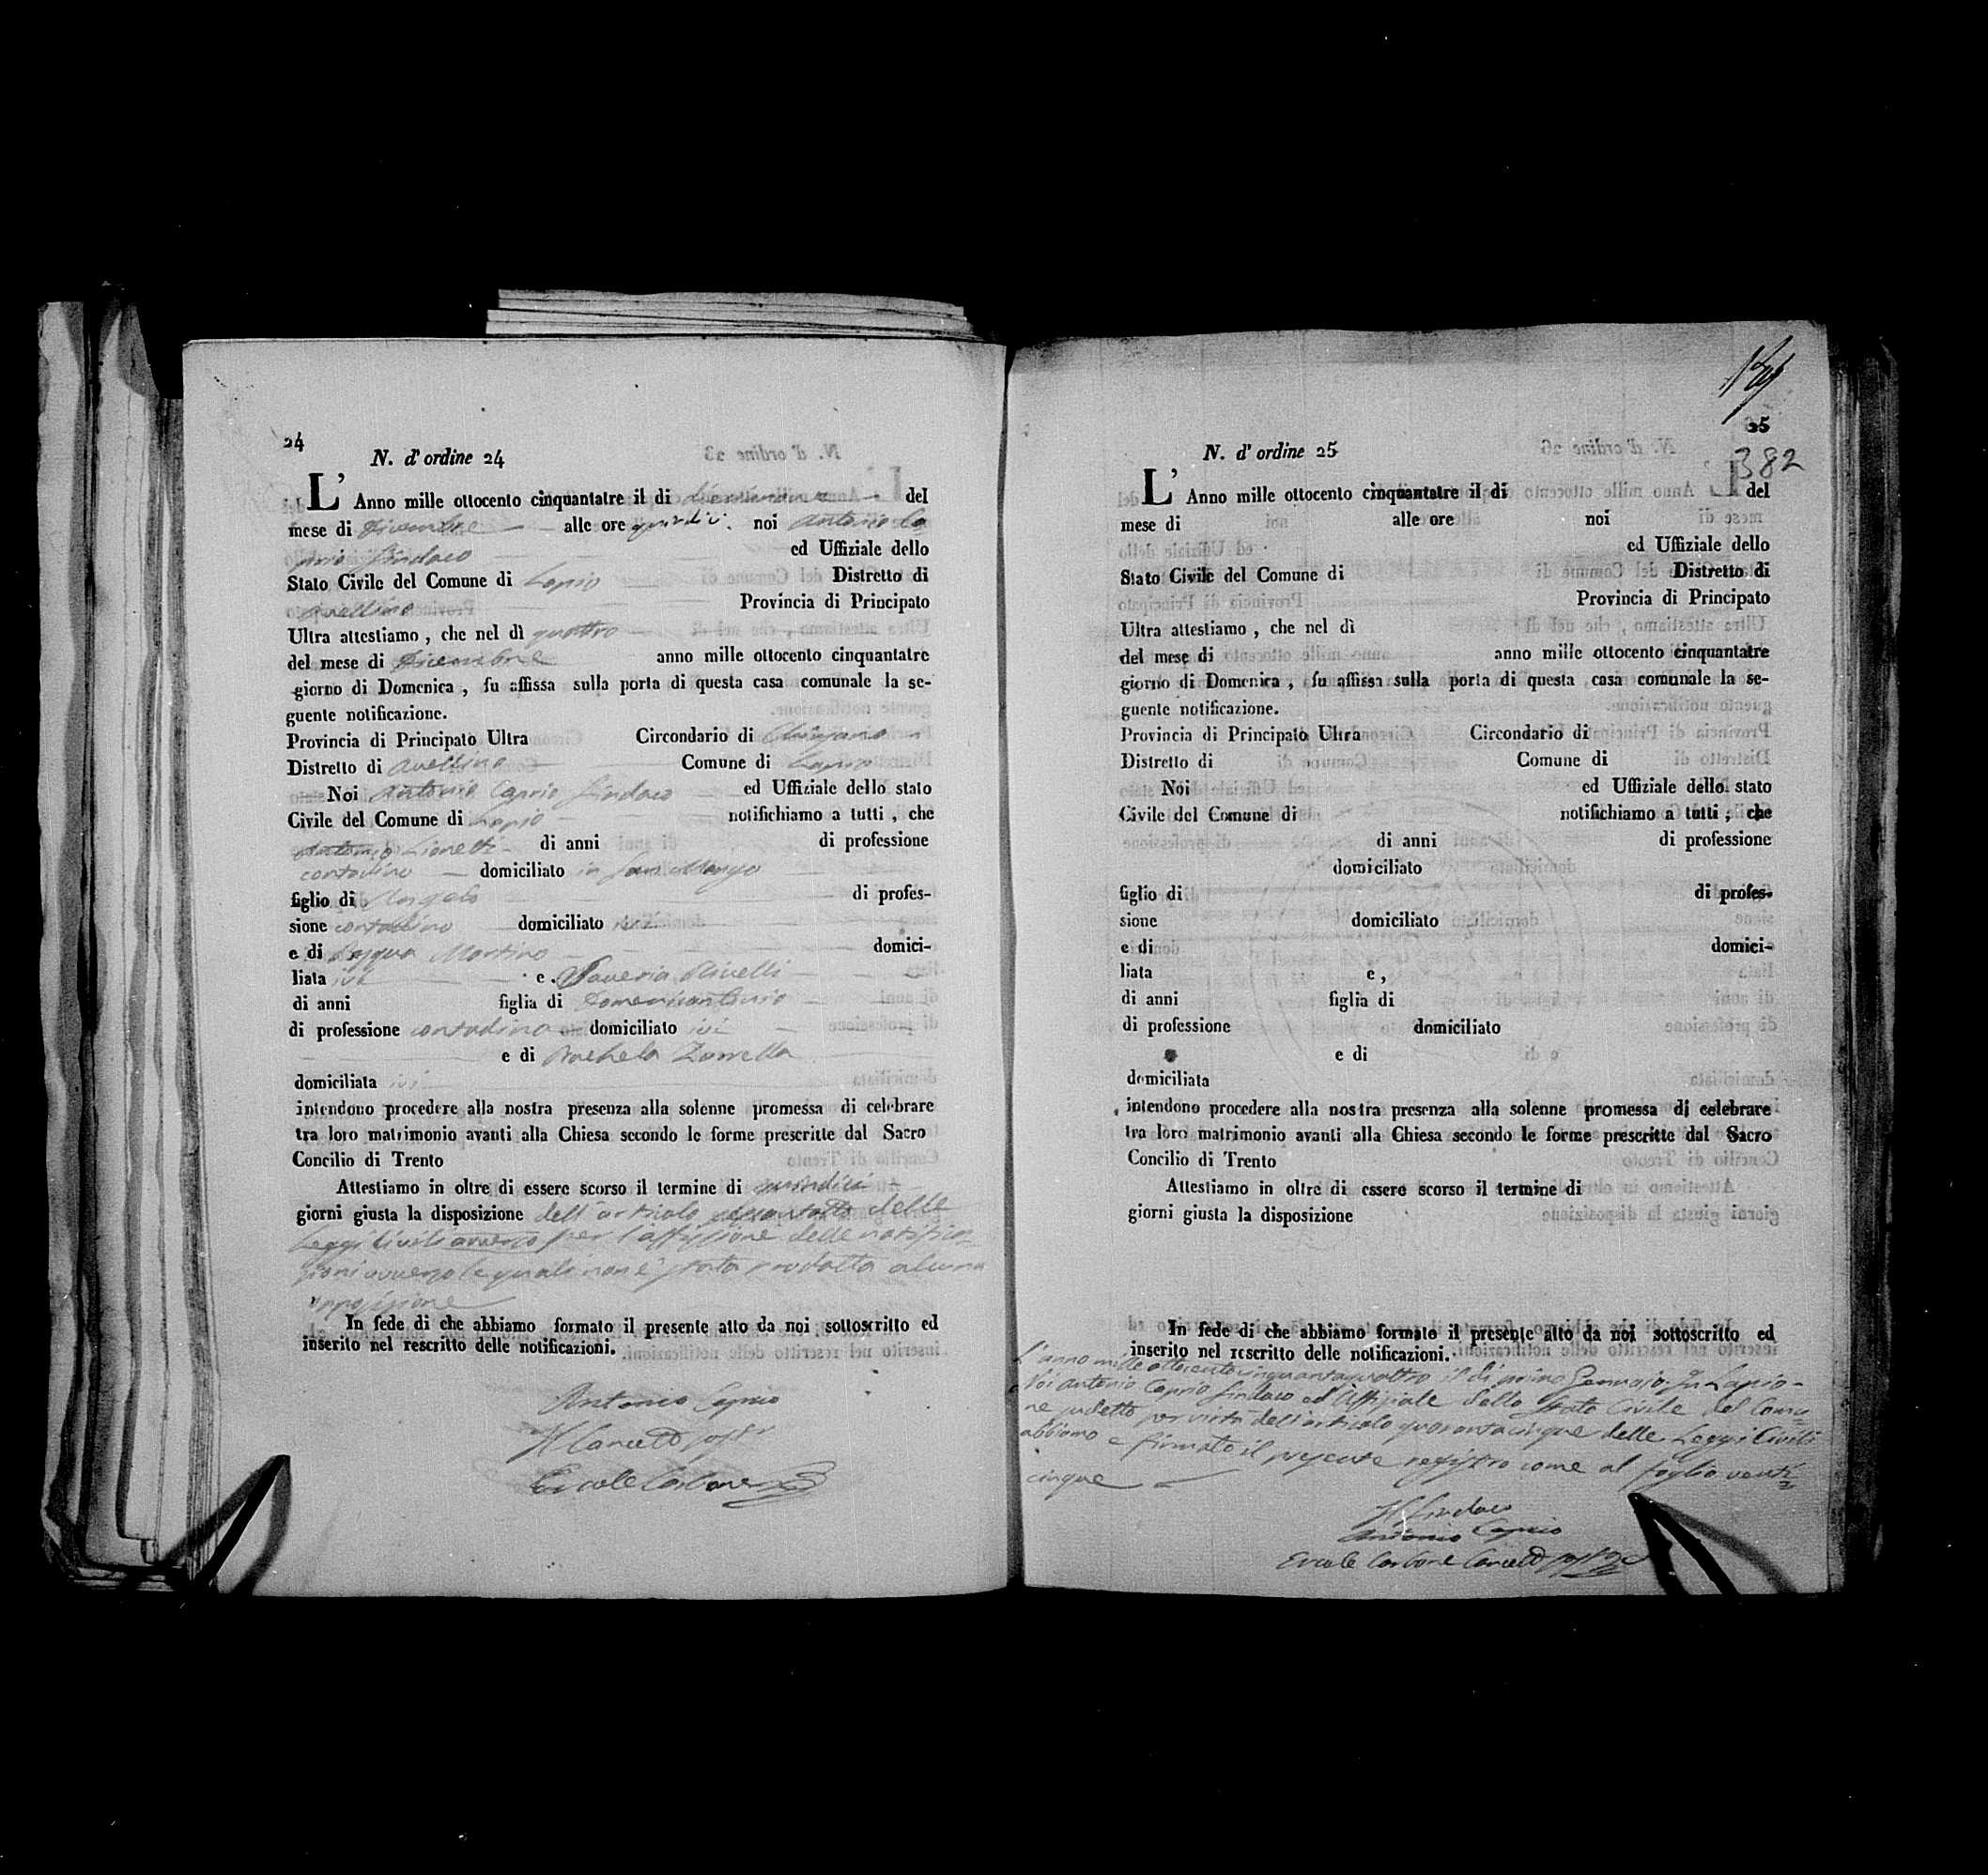 24
N. d'ordine 24
L' Anno mille ottocento cinquantatre il di del
mese di Dicembre alle ore quindici noi Antonio Ca
prio Sindaco ed Uffiziale dello
Stato Civile del Comune di Lapio Distretto di
Avellino Provincia di Principato
Ultra attestiamo , che nel dì quattro
del mese di Dicembre anno mille ottocento cinquantatre
giorno di Domenica , fu affissa sulla porta di questa casa comunale la se-
guente notificazione.
Provincia di Principato Ultra Circondario di Chiusano
Distretto di Avellino Comune di Lapio
Noi Antonio Caprio Sindaco ed Uffiziale dello stato
Civile del Comune di Lapio notifichiamo a tutti , che
Antonio Lionetti di anni di professione
contadino domiciliato in San Mango
figlio di Angelo di profes-
sione contadino domiciliato ivi
e di Martino domici-
liata ivi e Saveria
di anni figlia di Domenicantonio
di professione contadino domiciliato ivi
e di Rachela Zarrella
domiciliata ivi
intendono procedere alla nostra presenza alla solenne promessa di celebrare
tra loro matrimonio avanti alla Chiesa secondo le forme prescritte dal Sacro
Concilio di Trento
Attestiamo in oltre di essere scorso il termine di quindici
giorni giusta la disposizione dell'articolo delle
Leggi Civili per l'affissione delle notifica-
zioni le quali non è stata prodotta alcuna
opposizione
In fede di che abbiamo formato il presente atto da noi sottoscritto ed
inserito nel rescritto delle notificazioni.
Antonio Caprio
Il
Ercole Carbone
25
382
N. d'ordine 25
L' Anno mille ottocento cinquantatre il di del
mese di alle ore noi
ed Uffiziale dello
Stato Civile del Comune di Distretto di
Provincia di Principato
Ultra attestiamo , che nel dì
del mese di anno mille ottocento cinquantatre
giorno di Domenica , fu affissa sulla porta di questa casa comunale la se-
guente notificazione.
Provincia di Principato Ultra Circondario di
Distretto di Comune di
Noi ed Uffiziale dello stato
Civile del Comune di notifichiamo a tutti ; che
di anni di professione
domiciliato
figlio di di profes-
sione domiciliato
e di domici-
liata e ,
di anni figlia di
di professione domiciliato
e di
domiciliata
intendono procedere alla nostra presenza alla solenne promessa di celebrare
tra loro matrimonio avanti alla Chiesa secondo le forme prescritte dal Sacro
Concilio di Trento
Attestiamo in oltre di essere scorso il termine di
giorni giusta la disposizione
In fede di che abbiamo formato il presente atto da noi sottoscritto ed
inserito nel rescritto delle notificazioni.
L'anno mille ottocentocinquantaquattro il di primo Gennajo In Lapio
Noi Antonio Caprio Sindaco ed Uffiziale dello Stato Civile del Comu
ne sudetto per virtù dell'articolo quarantacinque delle Leggi Civili
abbiamo e firmato il presente registro come al foglio venti
cinque
Il Sindaco
Antonio Caprio
Ercole Carbone